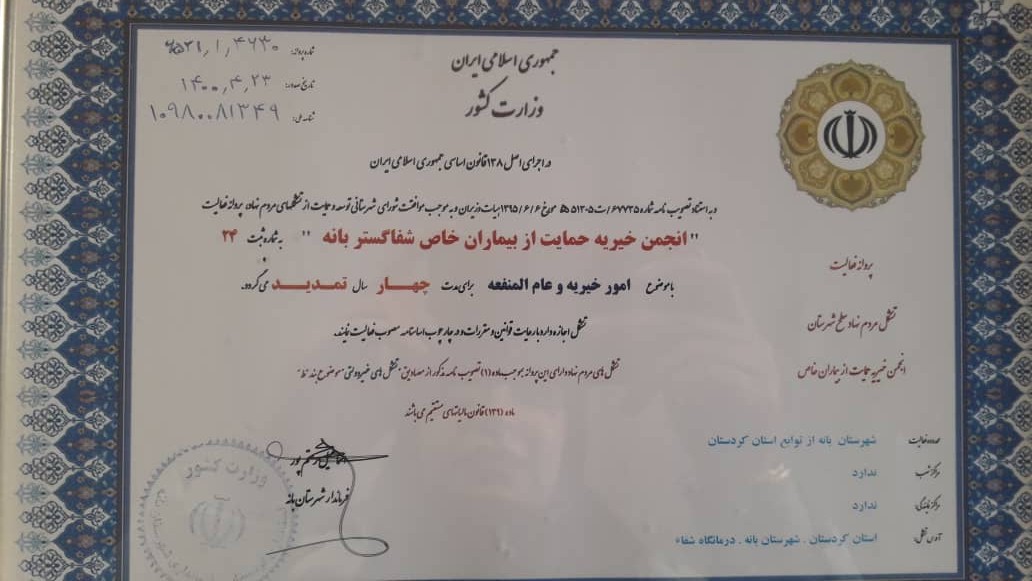 جمهوری اسلامی ایران
وزارت کشور
شماره پروانه:
تاریخ صدور: ۱۴۰۰,۴,۲۳
شناسه ملی: ۱۰۹۸۰۰۸۱۳۴۹
در اجرای اصل ۱۳۸ قانون اساسی جمهوری اسلامی ایران
و به استناد تصویب نامه شماره ۶۷۷۳۵/ت۵۱۳۰۵ ه مورخ ۱۳۹۵/۶/۶ هیات وزیران و به موجب موافقت شورای شهرستانی توسعه و حمایت از تشکلهای مردم نهاد، پروانه فعالیت
" انجمن خیریه حمایت از بیماران خاص شفاگستر بانه " به شماره ثبت ۲۴
با موضوع امور خیریه و عام المنفعه برای مدت چهـــار سال تمدیـــد می گردد.
تشکل اجازه دارد با رعایت قوانین و مقررات و در چارچوب اساسنامه مصوب فعالیت نمایند.
تشکل های مردم نهاد دارای این پروانه بموجب ماده (۱) تصویب نامه مذکور از مصادیق "تشکل های غیردولتی" موضوع بند "ط"
ماده (۱۳۹) قانون مالیاتهای مستقیم می باشند
پروانه فعالیت
تشکل مردم نهاد سطح شهرستان
انجمن خیریه حمایت از بیماران خاص
محدوده فعالیت شهرستان بانه از توابع استان کردستان
مرکز شعب ندارد
مرکز نمایندگی ندارد
آدرس تشکل: استان کردستان . شهرستان بانه . درمانگاه شفاء
رستم پور
فرماندار شهرستان بانه
وزارت کشور